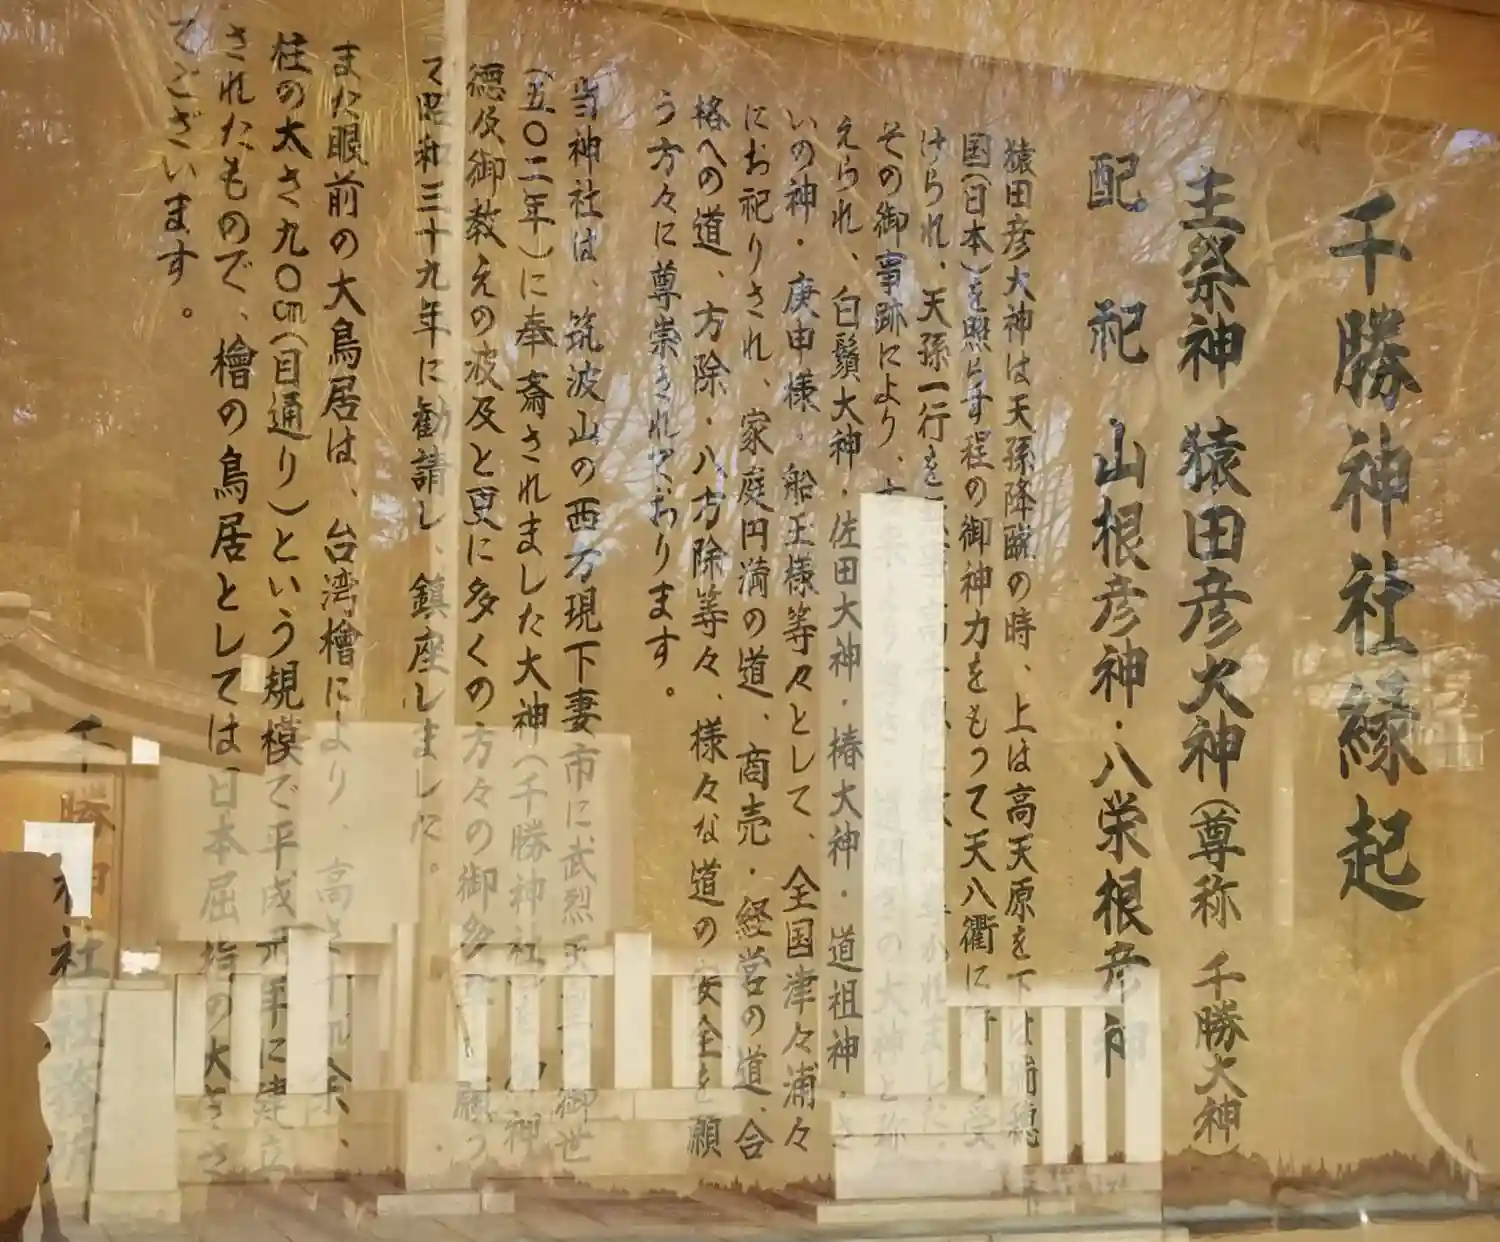 千勝神社縁起
主祭神 猿田彦大神(尊称 千勝大神)
配祀 山根彦神・八栄根彦神
猿田彦大神は天孫降臨の時、上は高天原を下は瑞穂
国(日本)を照らす程の御神力をもって天八衢に 受
けられ、天孫一行を
その御事跡により、 の大神と称
えられ、白鬚大神・佐田大神・椿大神・道祖神・さ
いの神・庚申様・船玉様等々として、全国津々浦々
にお祀りされ、家庭円満の道、商売・経営の道、合
格への道、方除・八方除等々、様々な道の安全を願
う方々に尊崇されております。
当神社は、筑波山の西方現下妻市に、武烈天皇の御世
(五〇二年)に奉斎されました大神(千勝神社 神
徳及御教えの波及と更に多くの方々の御 願っ
て昭和三十九年に勧請し、鎮座しました。
また眼前の大鳥居は、台湾檜により、高さ十 余、
柱の大さ九〇cm(目通り)という規模で平成元年に建立
されたもので、檜の鳥居としては日本屈指の大きさ
でございます。
千勝神社社務所